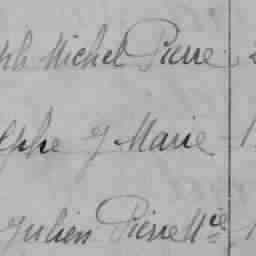 ph Michel Pierre 2
lphe J Marie 1
Julien Pierre Mie 1